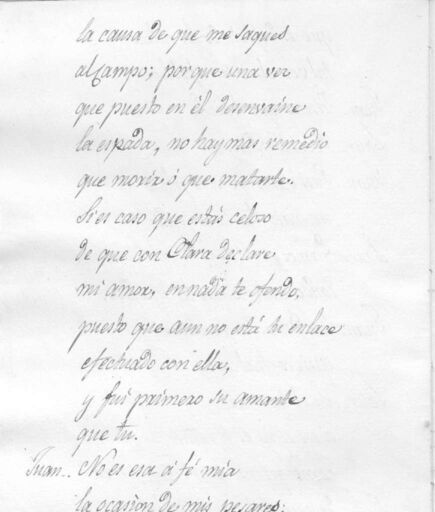 la causa de que me saques
al Campo; porque una vez
que puesto en él desenvaine
la espada, no hay mas remedio
que morir ó que matarte.
Si es caso que estás celoso
de que con Clara declare
mi amor, en nada te ofendo,
puesto que aun no está tu enlace
efectuado con ella,
y fui primero su amante
que tu.
Juan.. No es esa á fé mia
la ocasion de mis pesares: